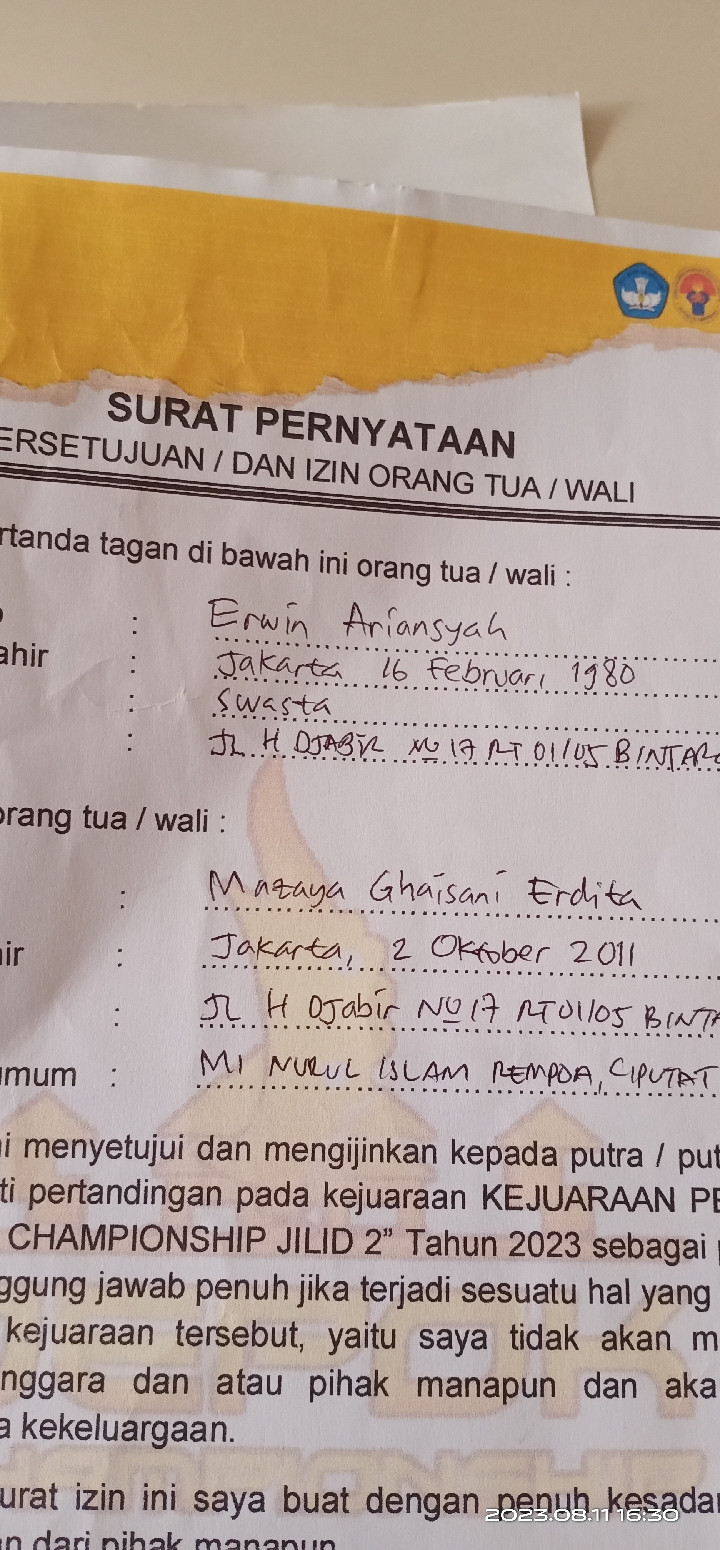 SURAT PERNYATAAN
ERSETUJUAN / DAN IZIN ORANG TUA / WALI
rtanda tagan di bawah ini orang tua / wali :
: Erwin Ariansyah
ahir : Jakarta 16 Februari 1980
: Swasta
: JL H DJABIR No 17 RT 01/05 BINTARO
orang tua / wali :
: Mazaya Ghaisani Erdita
ir : Jakarta, 2 Oktober 2011
: JL H Djabir No 17 RT 01/05 BINTA
mum : MI NURUL ISLAM REMPOA, CIPUTAT
i menyetujui dan mengijinkan kepada putra / put
ti pertandingan pada kejuaraan KEJUARAAN PE
CHAMPIONSHIP JILID 2” Tahun 2023 sebagai p
ggung jawab penuh jika terjadi sesuatu hal yang
kejuaraan tersebut, yaitu saya tidak akan m
nggara dan atau pihak manapun dan aka
a kekeluargaan.
urat izin ini saya buat dengan penuh kesadar
n dari pihak manapun
2023.08.11 16:30